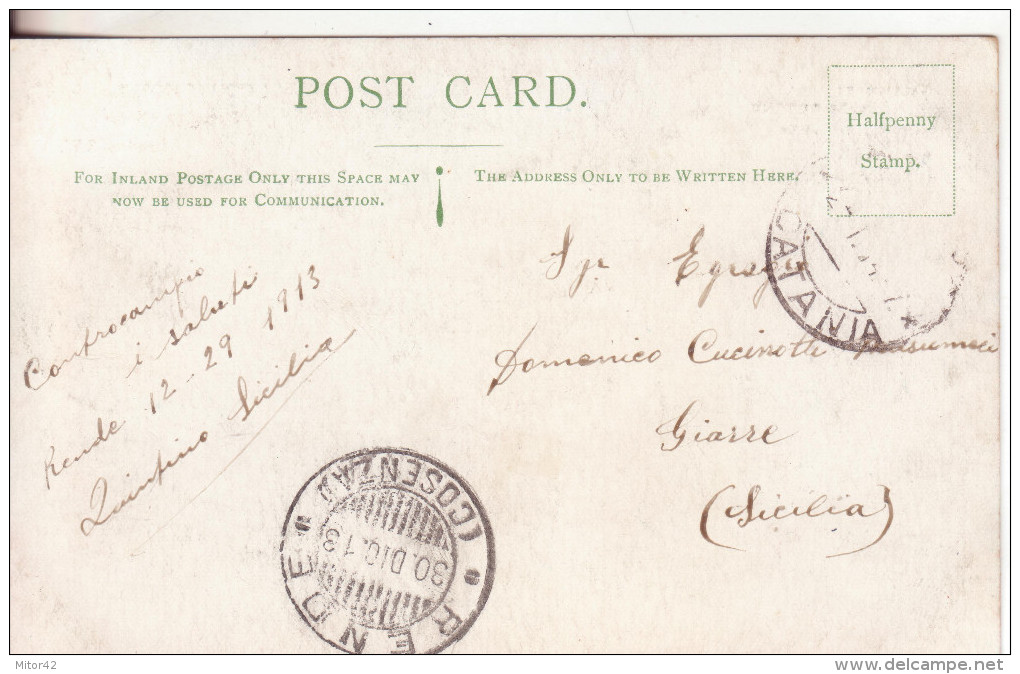 POST CARD.
Halfpenny
Stamp.
FOR INLAND POSTAGE ONLY THIS SPACE MAY
NOW BE USED FOR COMMUNICATION.
THE ADDRESS ONLY TO BE WRITTEN HERE.
Controcampio
i saluti
Rende 12-29 1913
Quintino Sicilia
Sgr
Domenico Cucinotti
Giarre
(Sicilia)
CATANIA
RENDE
(COSENZA)
30.DIC.13
Mitor42
www.delcampe.net